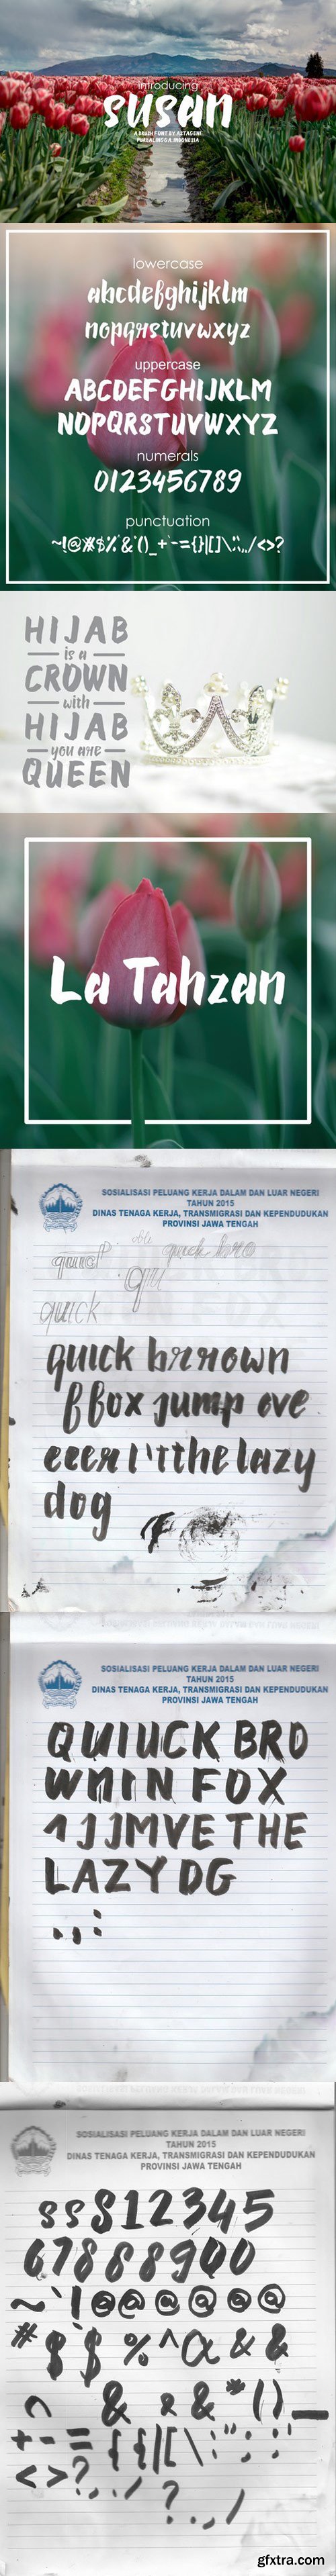 introducing
SUSAN
A BRUSH FONT BY ARTAGENE
PURBALINGGA, INDONESIA
lowercase
abcdefghijklm
nopqrstuvwxyz
uppercase
ABCDEFGHIJKLM
NOPQRSTUVWXYZ
numerals
0123456789
punctuation
~!@#$%^&*()_+`-={}|[]\:;",./<>?
HIJAB
is a
CROWN
with
HIJAB
you are
QUEEN
La Tahzan
SOSIALISASI PELUANG KERJA DALAM DAN LUAR NEGERI
TAHUN 2015
DINAS TENAGA KERJA, TRANSMIGRASI DAN KEPENDUDUKAN
PROVINSI JAWA TENGAH
quick
quick bro
qu
quick
quick brrrown
ffox jump ove
eeer l'tthe lazy
dog
SOSIALISASI PELUANG KERJA DALAM DAN LUAR NEGERI
TAHUN 2015
DINAS TENAGA KERJA, TRANSMIGRASI DAN KEPENDUDUKAN
PROVINSI JAWA TENGAH
QUIUCK BRO
WNIN FOX
1JJMVE THE
LAZY DG
., :
SOSIALISASI PELUANG KERJA DALAM DAN LUAR NEGERI
TAHUN 2015
DINAS TENAGA KERJA, TRANSMIGRASI DAN KEPENDUDUKAN
PROVINSI JAWA TENGAH
ssS12345
678888900
~`!@@@@@@
#$$%^&&&
&&&*()_
+-={{|[\:";:'
<>?,./?.,/
gfxtra.com